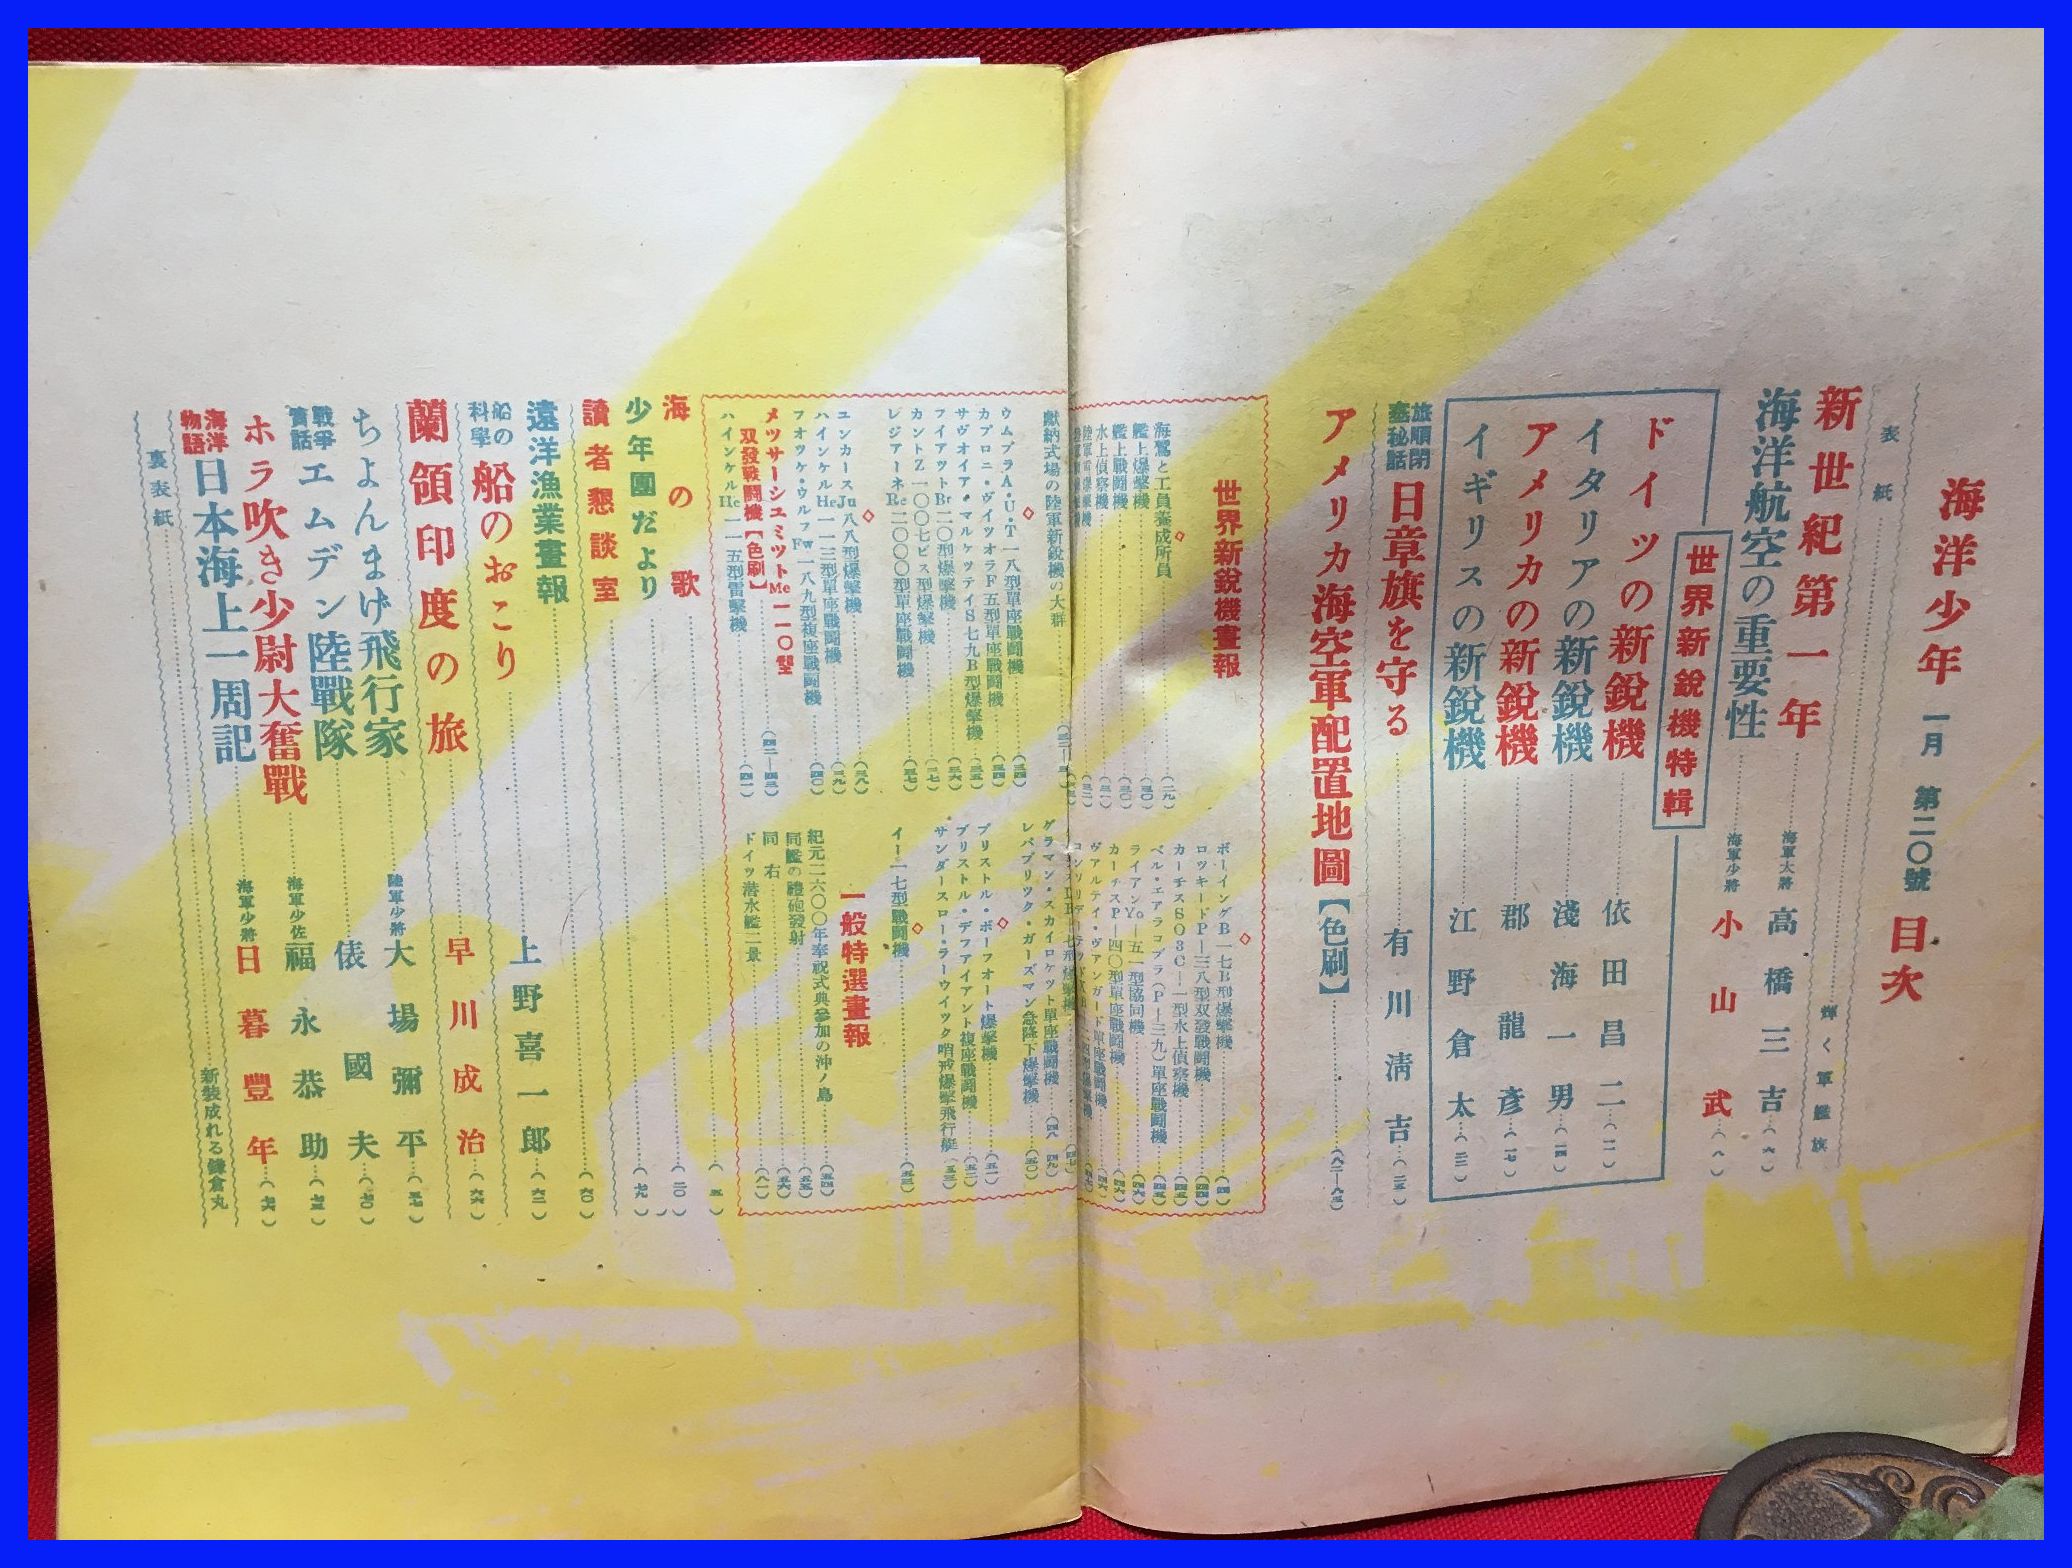 海洋少年 一月 第二〇號 目次
表紙……輝く軍艦旗
新世紀第一年……海軍大將 高橋三吉…(六)
海洋航空の重要性……海軍少將 小山武…(八)
世界新鋭機特輯
ドイツの新鋭機……依田昌二…(一一)
イタリアの新鋭機……淺海一男…(一四)
アメリカの新鋭機……郡龍彦…(一七)
イギリスの新鋭機……江野倉太…(二二)
旅順閉塞秘話 日章旗を守る……有川清吉…(二五)
アメリカ海空軍配置地圖【色刷】……(八二—八三)
世界新鋭機畫報
海鷲と工員養成所員……(二九)
艦上爆撃機……(三〇)
艦上戰鬪機……(三〇)
水上偵察機……(三一)
獻納式場の陸軍新鋭機の大群
ウムブラA・U・T一八型單座戰鬪機……(三四)
カプロニ・ヴイツオラF五型單座戰鬪機……(三五)
サヴオイア・マルケツテイS七九B型爆撃機……(三五)
フイアツトBr二〇型爆撃機……(三六)
カントZ一〇〇七ビス型爆撃機……(三七)
レジアーネRe二〇〇〇型單座戰鬪機……(三七)
ユンカースJu八八型爆撃機……(三八)
ハインケルHe一一三型單座戰鬪機……(三九)
フオツケ・ウルフFw一八九型複座戰鬪機……(四〇)
メツサーシユミツトMe一一〇型双發戰鬪機【色刷】……(四二—四三)
ハインケルHe一一五型雷撃機……(四一)
ボーイングB一七B型爆撃機……(四四)
ロツキードP—三八型双發戰鬪機……(四四)
カーチスSO3C—一型水上偵察機……(四五)
ベル・エアラコブラ(P—三九)單座戰鬪機……(四五)
ライアンYo—五一型協同機……(四六)
カーチスP—四〇型單座戰鬪機……(四六)
ヴアルテイ・ヴアンガード單座戰鬪機……(四六)
グラマン・スカイロケツト單座戰鬪機……(四八—四九)
レパブリツク・ガーズマン急降下爆撃機……(五〇)
ブリストル・ボーフオート爆撃機……(五一)
ブリストル・デフアイアント複座戰鬪機……(五二)
サンダースロー・ラーウイツク哨戒爆撃飛行艇…(五三)
イ—一七型戰鬪機……(五三)
一般特選畫報
紀元二六〇〇年奉祝式典參加の沖ノ島……(五四)
同艦の禮砲發射……(五五)
同右……(五六)
ドイツ潜水艦二景……(八一)
海の歌……(五)
少年團だより……(七九)
讀者懇談室
遠洋漁業畫報……(六〇)
船の科學 船のおこり……上野喜一郎…(六二)
蘭領印度の旅……早川成治…(六六)
ちよんまげ飛行家……陸軍少將 大場彌平…(五七)
戰爭實話 エムデン陸戰隊……俵國夫…(七〇)
ホラ吹き少尉大奮戰……海軍少佐 福永恭助…(七三)
海洋物語 日本海上一周記……海軍少將 日暮豐年…(七六)
裏表紙……新装成れる鎌倉丸